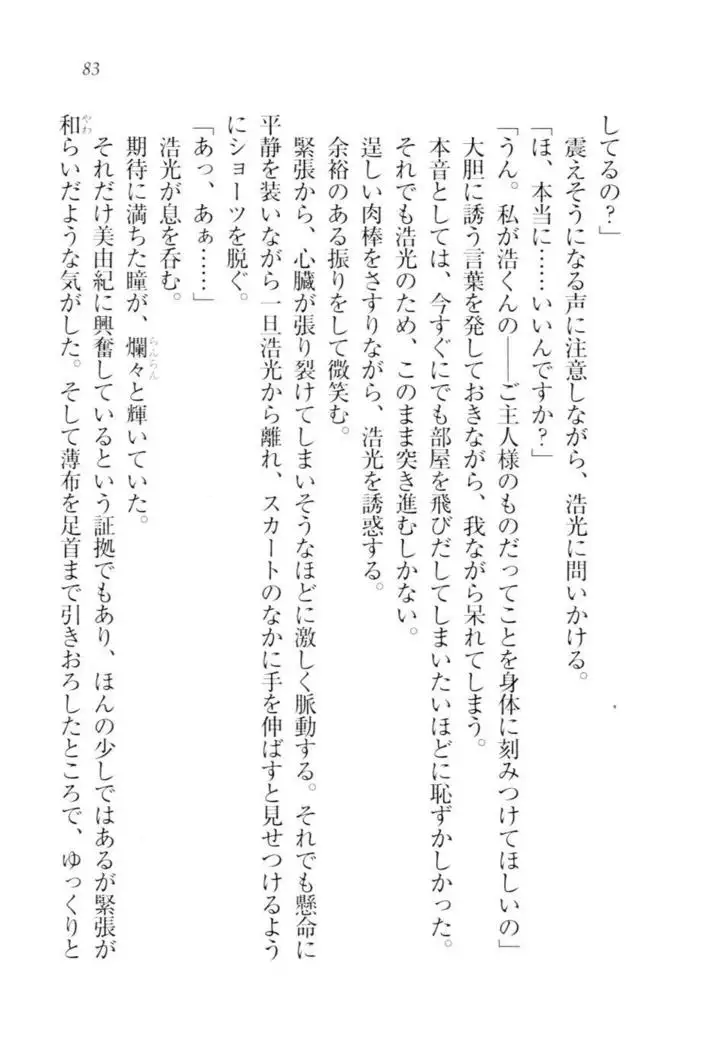 83
してるの？」
震えそうになる声に注意しながら、浩光に問いかける。
「ほ、本当に……いいんですか？」
「うん。私が浩くんの――ご主人様のものだってことを身体に刻みつけてほしいの」
大胆に誘う言葉を発しておきながら、我ながら呆れてしまう。
本音としては、今すぐにでも部屋を飛びだしてしまいたいほどに恥ずかしかった。
それでも浩光のため、このまま突き進むしかない。
逞しい肉棒をさすりながら、浩光を誘惑する。
余裕のある振りをして微笑む。
緊張から、心臓が張り裂けてしまいそうなほどに激しく脈動する。それでも懸命に
平静を装いながら一旦浩光から離れ、スカートのなかに手を伸ばすと見せつけるよう
にショーツを脱ぐ。
「あっ、あぁ……」
浩光が息を呑む。
期待に満ちた瞳が、爛々らんらんと輝いていた。
それだけ美由紀に興奮しているという証拠でもあり、ほんの少しではあるが緊張が
和やわらいだような気がした。そして薄布を足首まで引きおろしたところで、ゆっくりと